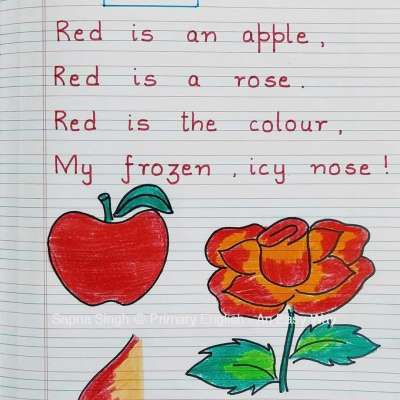 Red is an apple,
Red is a rose.
Red is the colour,
My frozen, icy nose!
Sapna Singh @ Primary English - An Easy Way